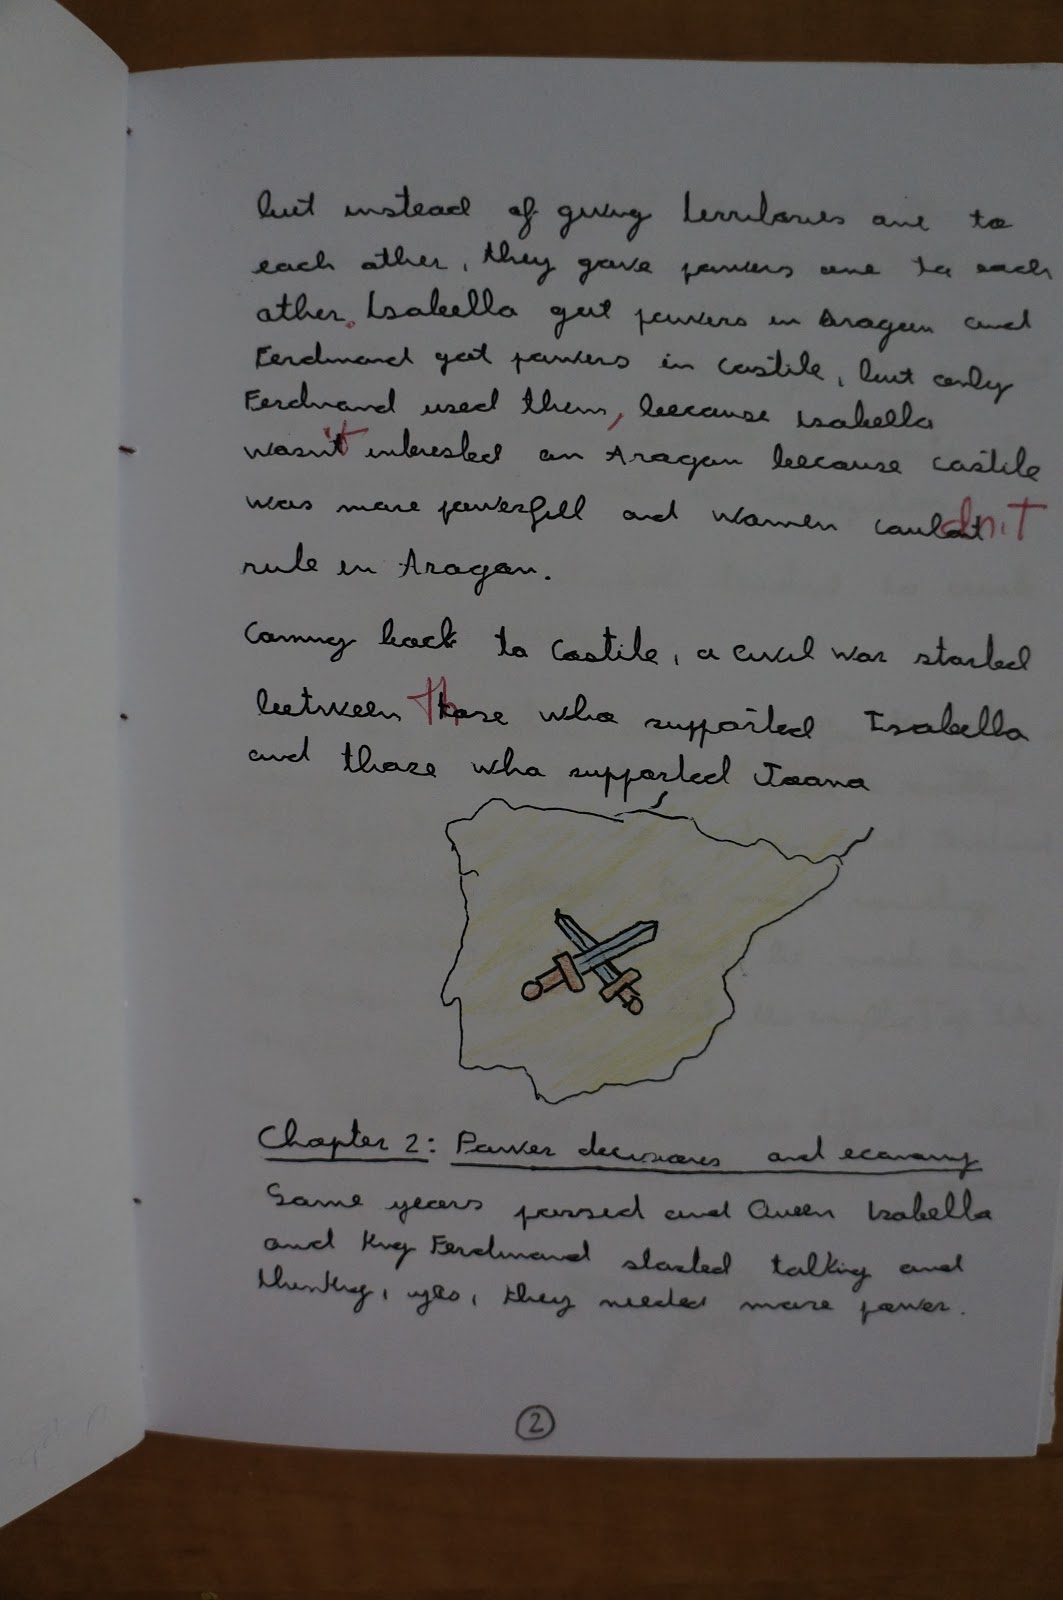 but instead of giving territories one to
each other, they gave powers one to each
other. Isabella got powers in Aragon and
Ferdinand got powers in Castile, but only
Ferdinand used them, because Isabella
wasn't interested on Aragon because Castile
was more powerfull and women couldn't
rule in Aragon.
Coming back to Castile, a civil war started
between those who supported Isabella
and those who supported Joana
Chapter 2: Power decisiones and economy
Some years passed and Queen Isabella
and King Ferdinand started talking and
thinking, yes, they needed more power.
2